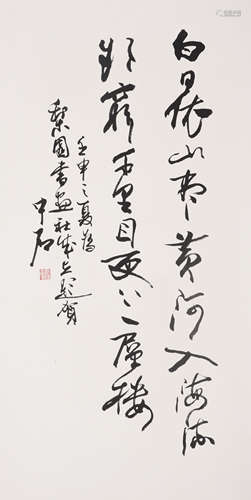 白日依山尽黄河入海流
欲穷千里目更上一层楼
壬申之夏为
梨园书画社成立题贺
中石